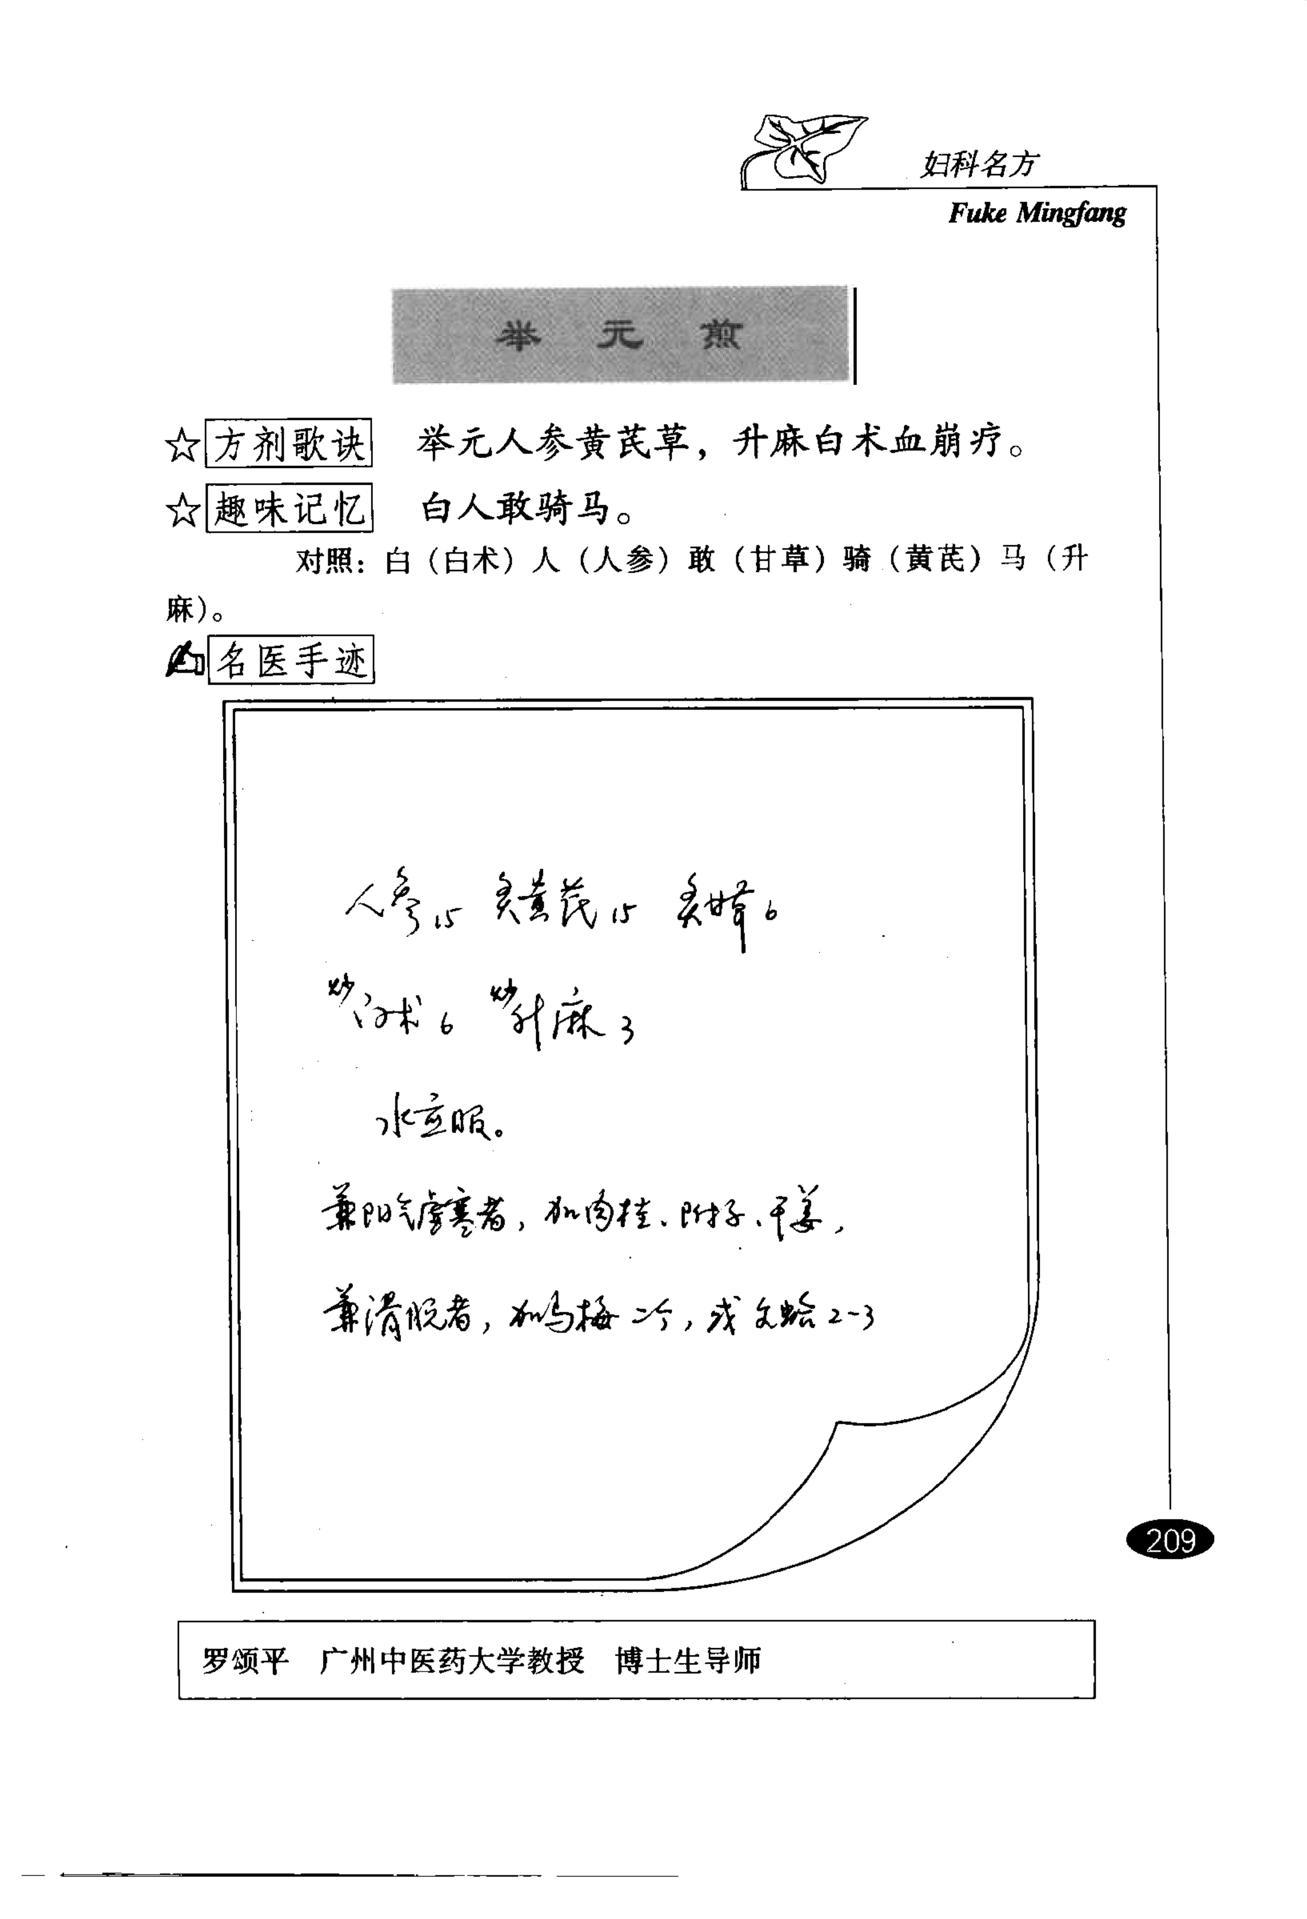 妇科名方
Fuke Mingfang
举元煎
☆方剂歌诀 举元人参黄芪草，升麻白术血崩疗。
☆趣味记忆 白人敢骑马。
对照：白（白术）人（人参）敢（甘草）骑（黄芪）马（升
麻）。
名医手迹
人参15 炙黄芪15 炙甘草6
炒白术6 炒升麻3
水煎服。
兼阳气虚寒者，加肉桂、附子、干姜，
兼滑脱者，加乌梅二个，或文蛤2-3
209
罗颂平 广州中医药大学教授 博士生导师